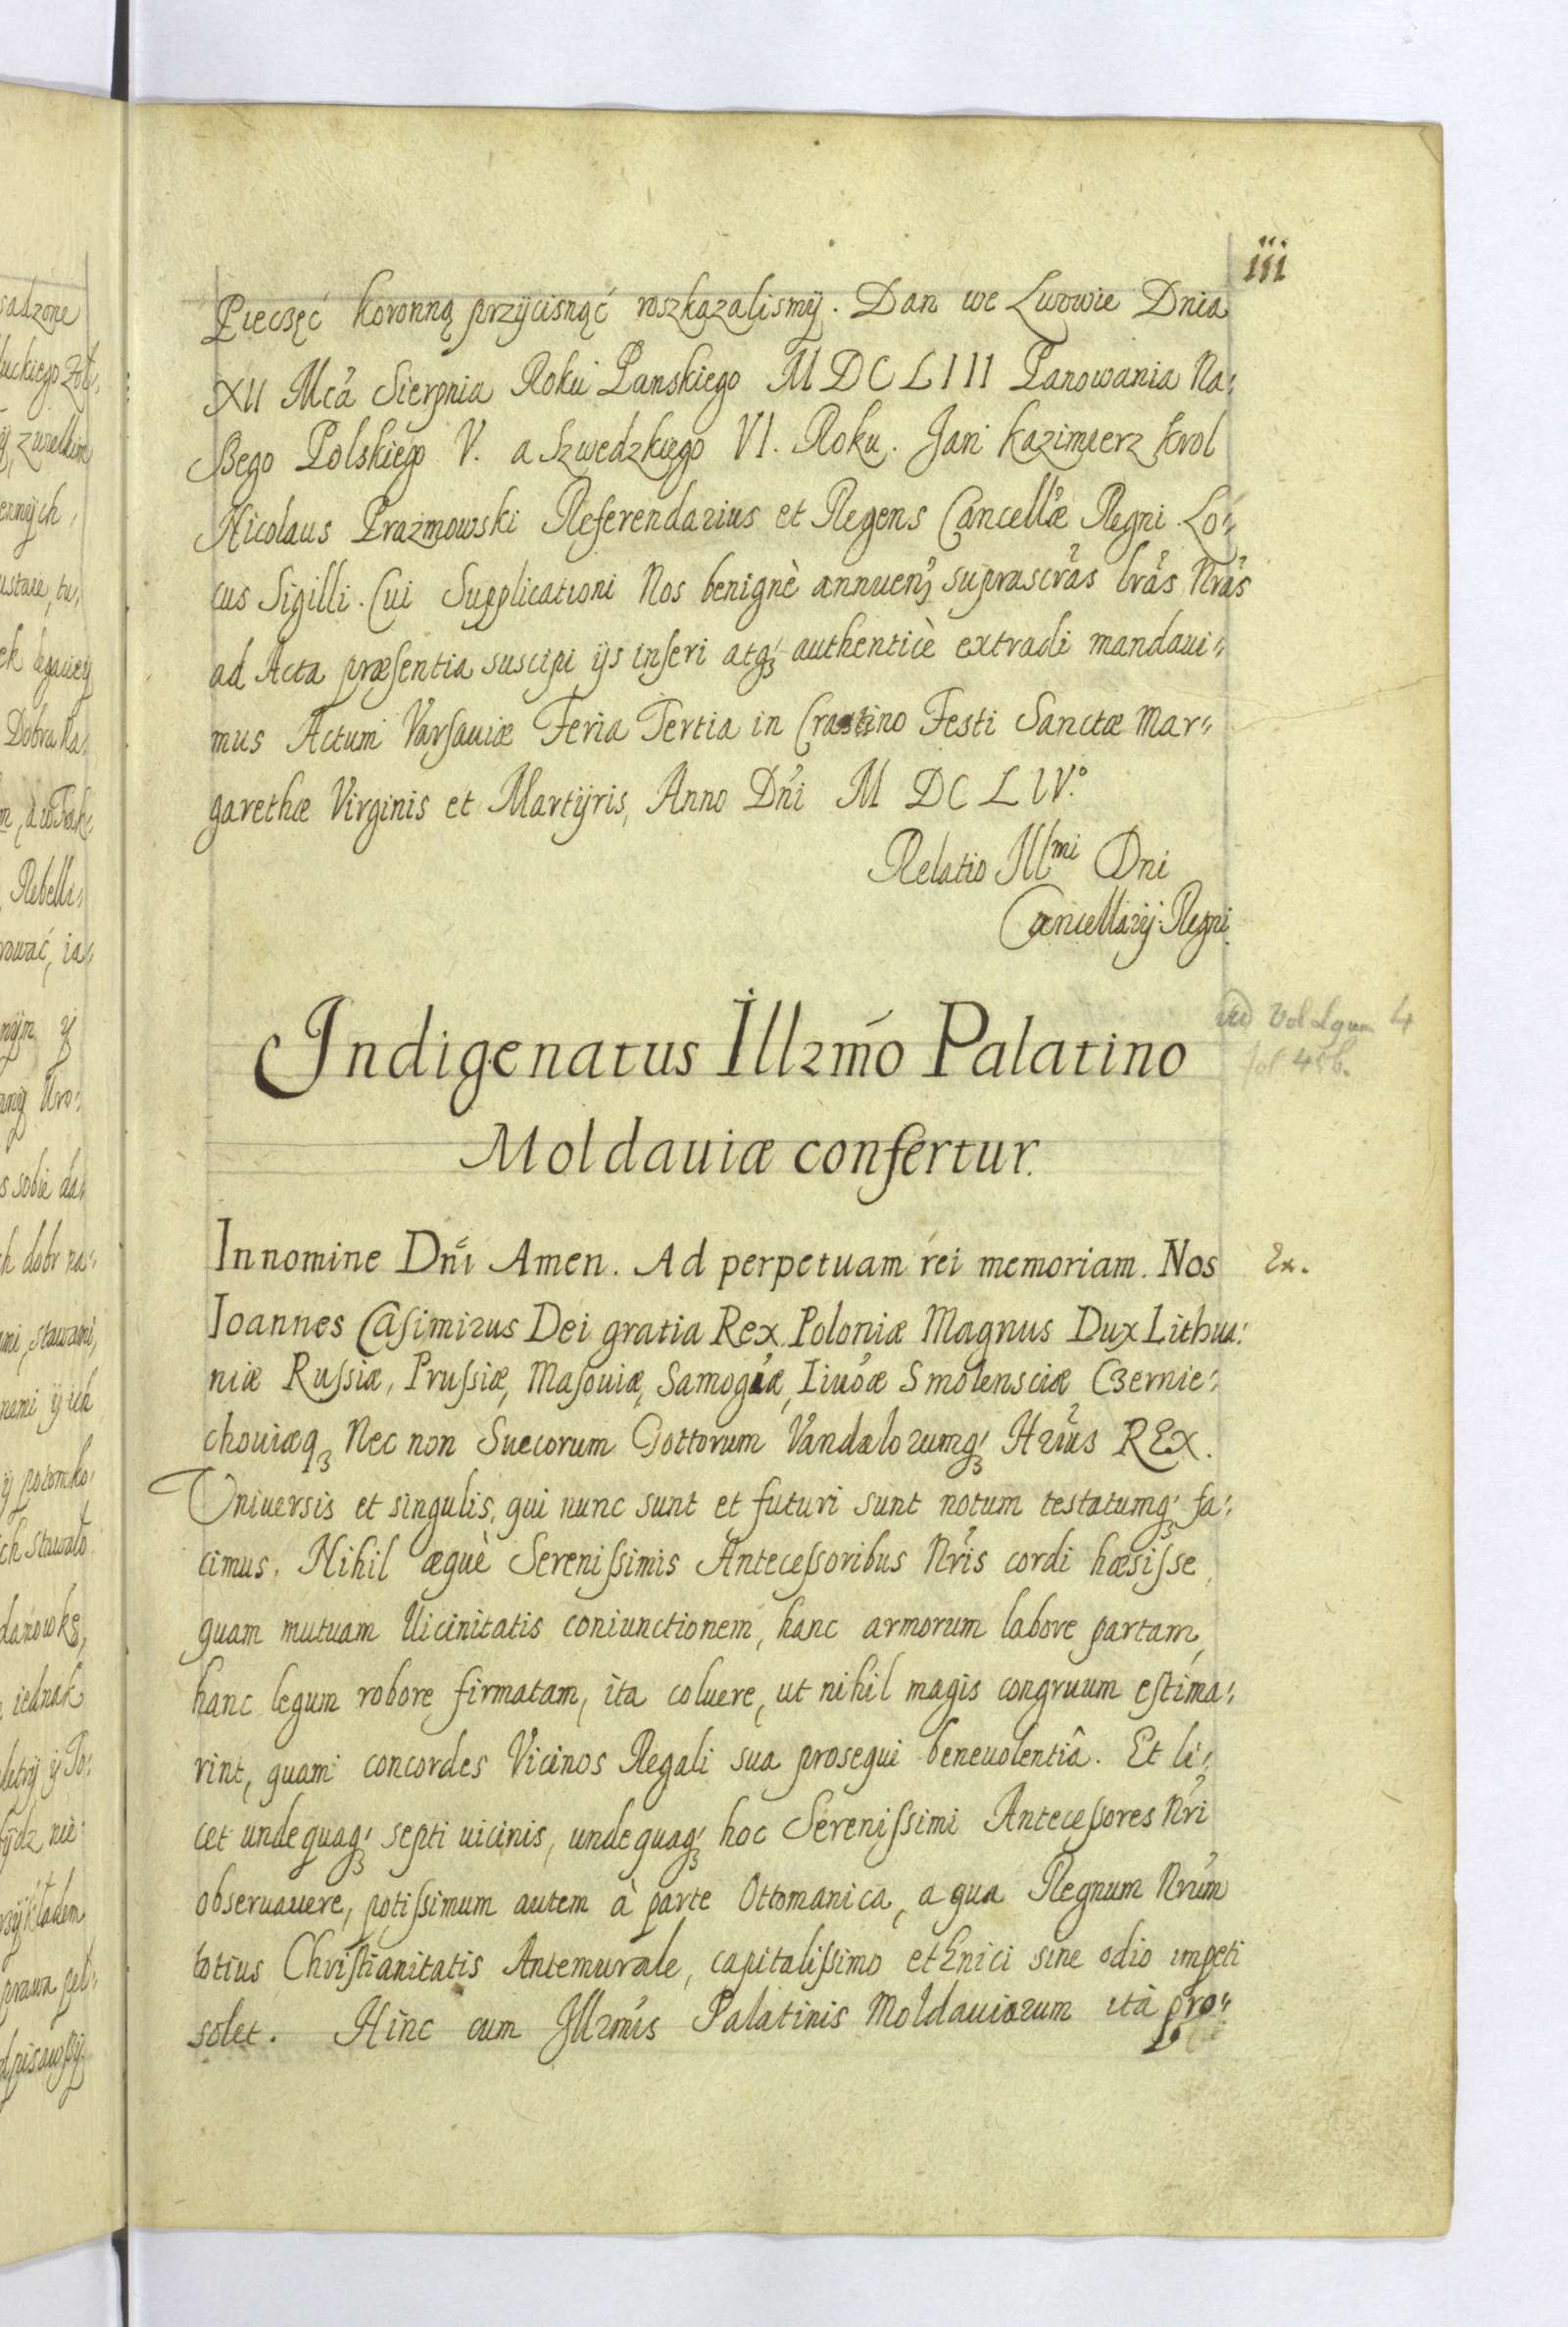 iii
Pieczęć koronną przycisnąć roszkazalismy. Dan we Lwowie Dnia
XII Mca Sierpnia Roku Panskiego MDCLIII Panowania Na:
szego Polskiego V. a Szwedzkiego VI. Roku. Jan Kazimierz Krol
Nicolaus Prazmowski Referendarius et Regens Cancellæ Regni Lo:
cus Sigilli. Cui Supplicationi Nos benignè annuen, suprascras lras Nras
ad Acta præsentia suscipi ijs inseri atq; authenticè extradi mandaui:
mus Actum Varsauiæ Feria Tertia in Crastino Festi Sanctæ Mar:
garethæ Virginis et Martyris, Anno Dni M DC LIV.°
Relatio Illmi Dni
Cancellarij Regni
Indigenatus Illrmo Palatino
Moldauiæ confertur.
In nomine Dni Amen. Ad perpetuam rei memoriam. Nos
Ex.
Ioannes Casimirus Dei gratia Rex Poloniæ Magnus Dux Lithua:
niæ Russiæ, Prussiæ, Masouiæ, Samogiæ, Liuoæ Smolensciæ Czernie:
chouiæq; Nec non Suecorum Gottorum Vandalorumq; Hrius REX.
Vniuersis et singulis, qui nunc sunt et futuri sunt notum testatumq; fa:
cimus. Nihil æquè Serenissimis Antecessoribus Nris cordi hæsisse,
quam mutuam Uicinitatis coniunctionem, hanc armorum labore partam,
hanc legum robore firmatam, ita coluere, ut nihil magis congruum estima:
rint, quam concordes Vicinos Regali sua prosequi beneuolentiâ. Et li:
cet undequaq; septi uicinis, undequaq; hoc Serenissimi Antecessores Nri
obseruauere, potissimum autem à parte Ottomanica, a qua Regnum Nrum
totius Christianitatis Antemurale, capitalissimo ethnici sine odio impeti
solet. Hinc cum Illrmis Palatinis Moldauiarum ità pro: